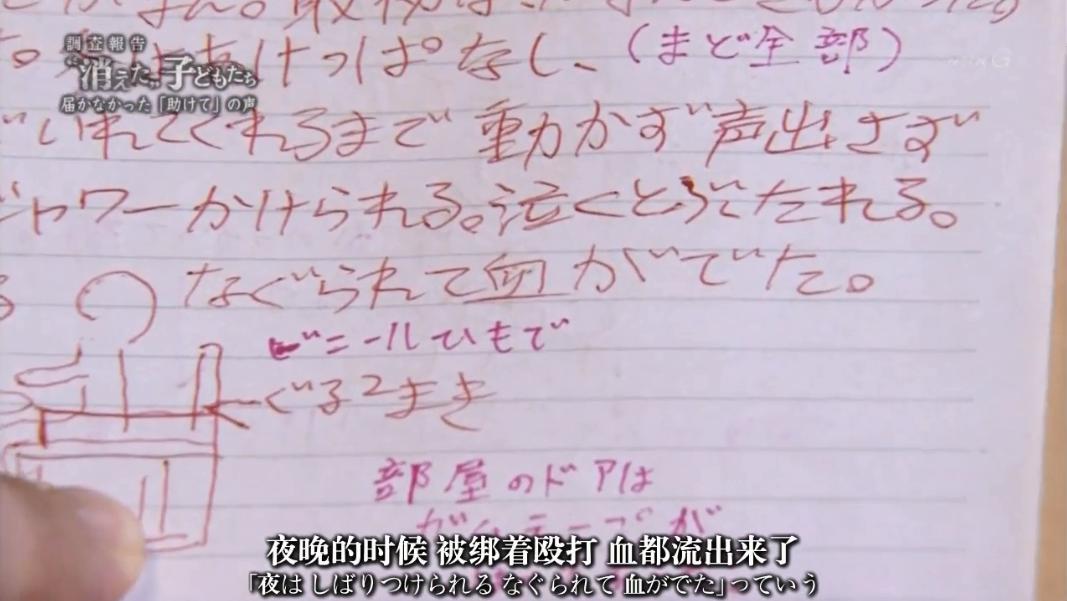 調査報告
“消えた”子どもたち
届かなかった「助けて」の声
けっぱなし、(まど全部)
いれてくれるまで動かず声出さず
シャワーかけられる。泣くとぶたれる。
なぐられて血がでた。
ビニールひもで
ぐる2まき
部屋のドアは
夜晚的时候 被绑着殴打 血都流出来了
「夜は しばりつけられる なぐられて 血がでた」っていう